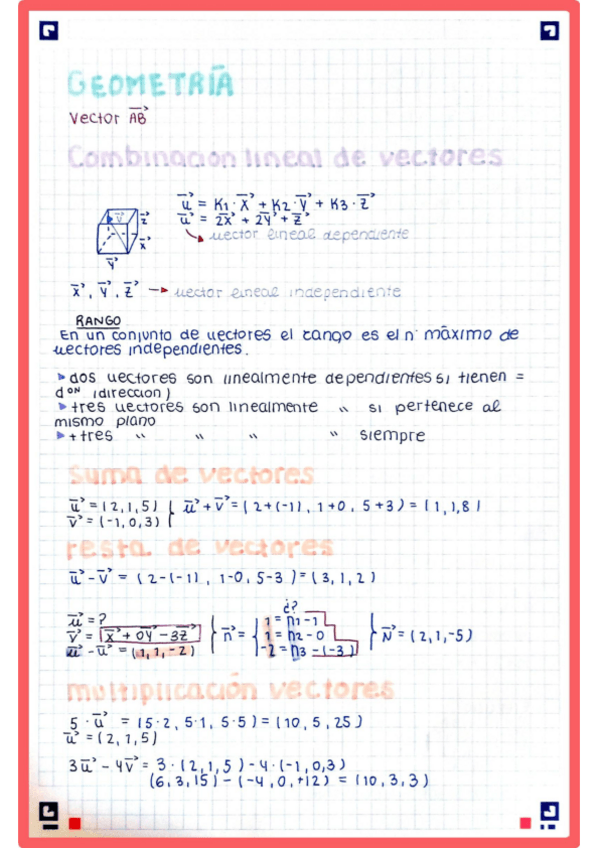 GEOMETRÍA
Vector AB⃗
Combinación lineal de vectores
u⃗ = K1 · x⃗ + K2 · y⃗ + K3 · z⃗
u⃗ = 2x⃗ + 2y⃗ + z⃗
vector lineal dependiente
v⃗ z⃗
x⃗
y⃗
x⃗, y⃗, z⃗ → vector lineal independiente
RANGO
En un conjunto de vectores el rango es el nº máximo de
vectores independientes.
▸ dos vectores son linealmente dependientes si tienen =
dᵒᴺ (dirección)
▸ tres vectores son linealmente " si pertenece al
mismo plano
▸ + tres " " " " siempre
Suma de vectores
u⃗ = (2,1,5) { u⃗ + v⃗ = (2+(-1), 1+0, 5+3) = (1,1,8)
v⃗ = (-1,0,3) {
resta de vectores
u⃗ - v⃗ = (2-(-1), 1-0, 5-3) = (3,1,2)
¿?
u⃗ = ? 1 = n1 - 1
v⃗ = x⃗ + 0y⃗ - 3z⃗ } n⃗ = { 1 = n2 - 0 } N⃗ = (2,1,-5)
u⃗ - u⃗ = (1,1,-2) -2 = n3 - (-3)
multiplicación vectores
5 · u⃗ = (5·2, 5·1, 5·5) = (10, 5, 25)
u⃗ = (2,1,5)
3u⃗ - 4v⃗ = 3 · (2,1,5) - 4 · (-1,0,3)
(6,3,15) - (-4,0,+12) = (10,3,3)